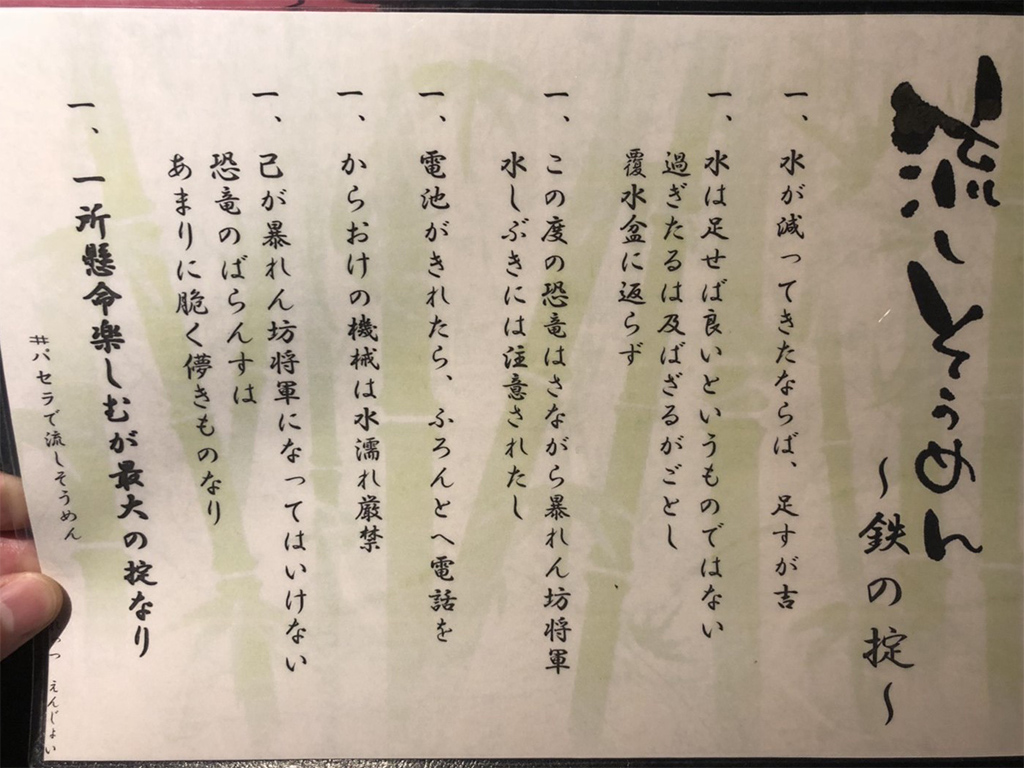 流しそうめん
～鉄の掟～
一、水が減ってきたならば、足すが吉
一、水は足せば良いというものではない
過ぎたるは及ばざるがごとし
覆水盆に返らず
一、この度の恐竜はさながら暴れん坊将軍
水しぶきには注意されたし
一、電池がきれたら、ふろんとへ電話を
一、からおけの機械は水濡れ厳禁
一、己が暴れん坊将軍になってはいけない
恐竜のばらんすは
あまりに脆く儚きものなり
一、一所懸命楽しむが最大の掟なり
#パセラで流しそうめん
えんじょい